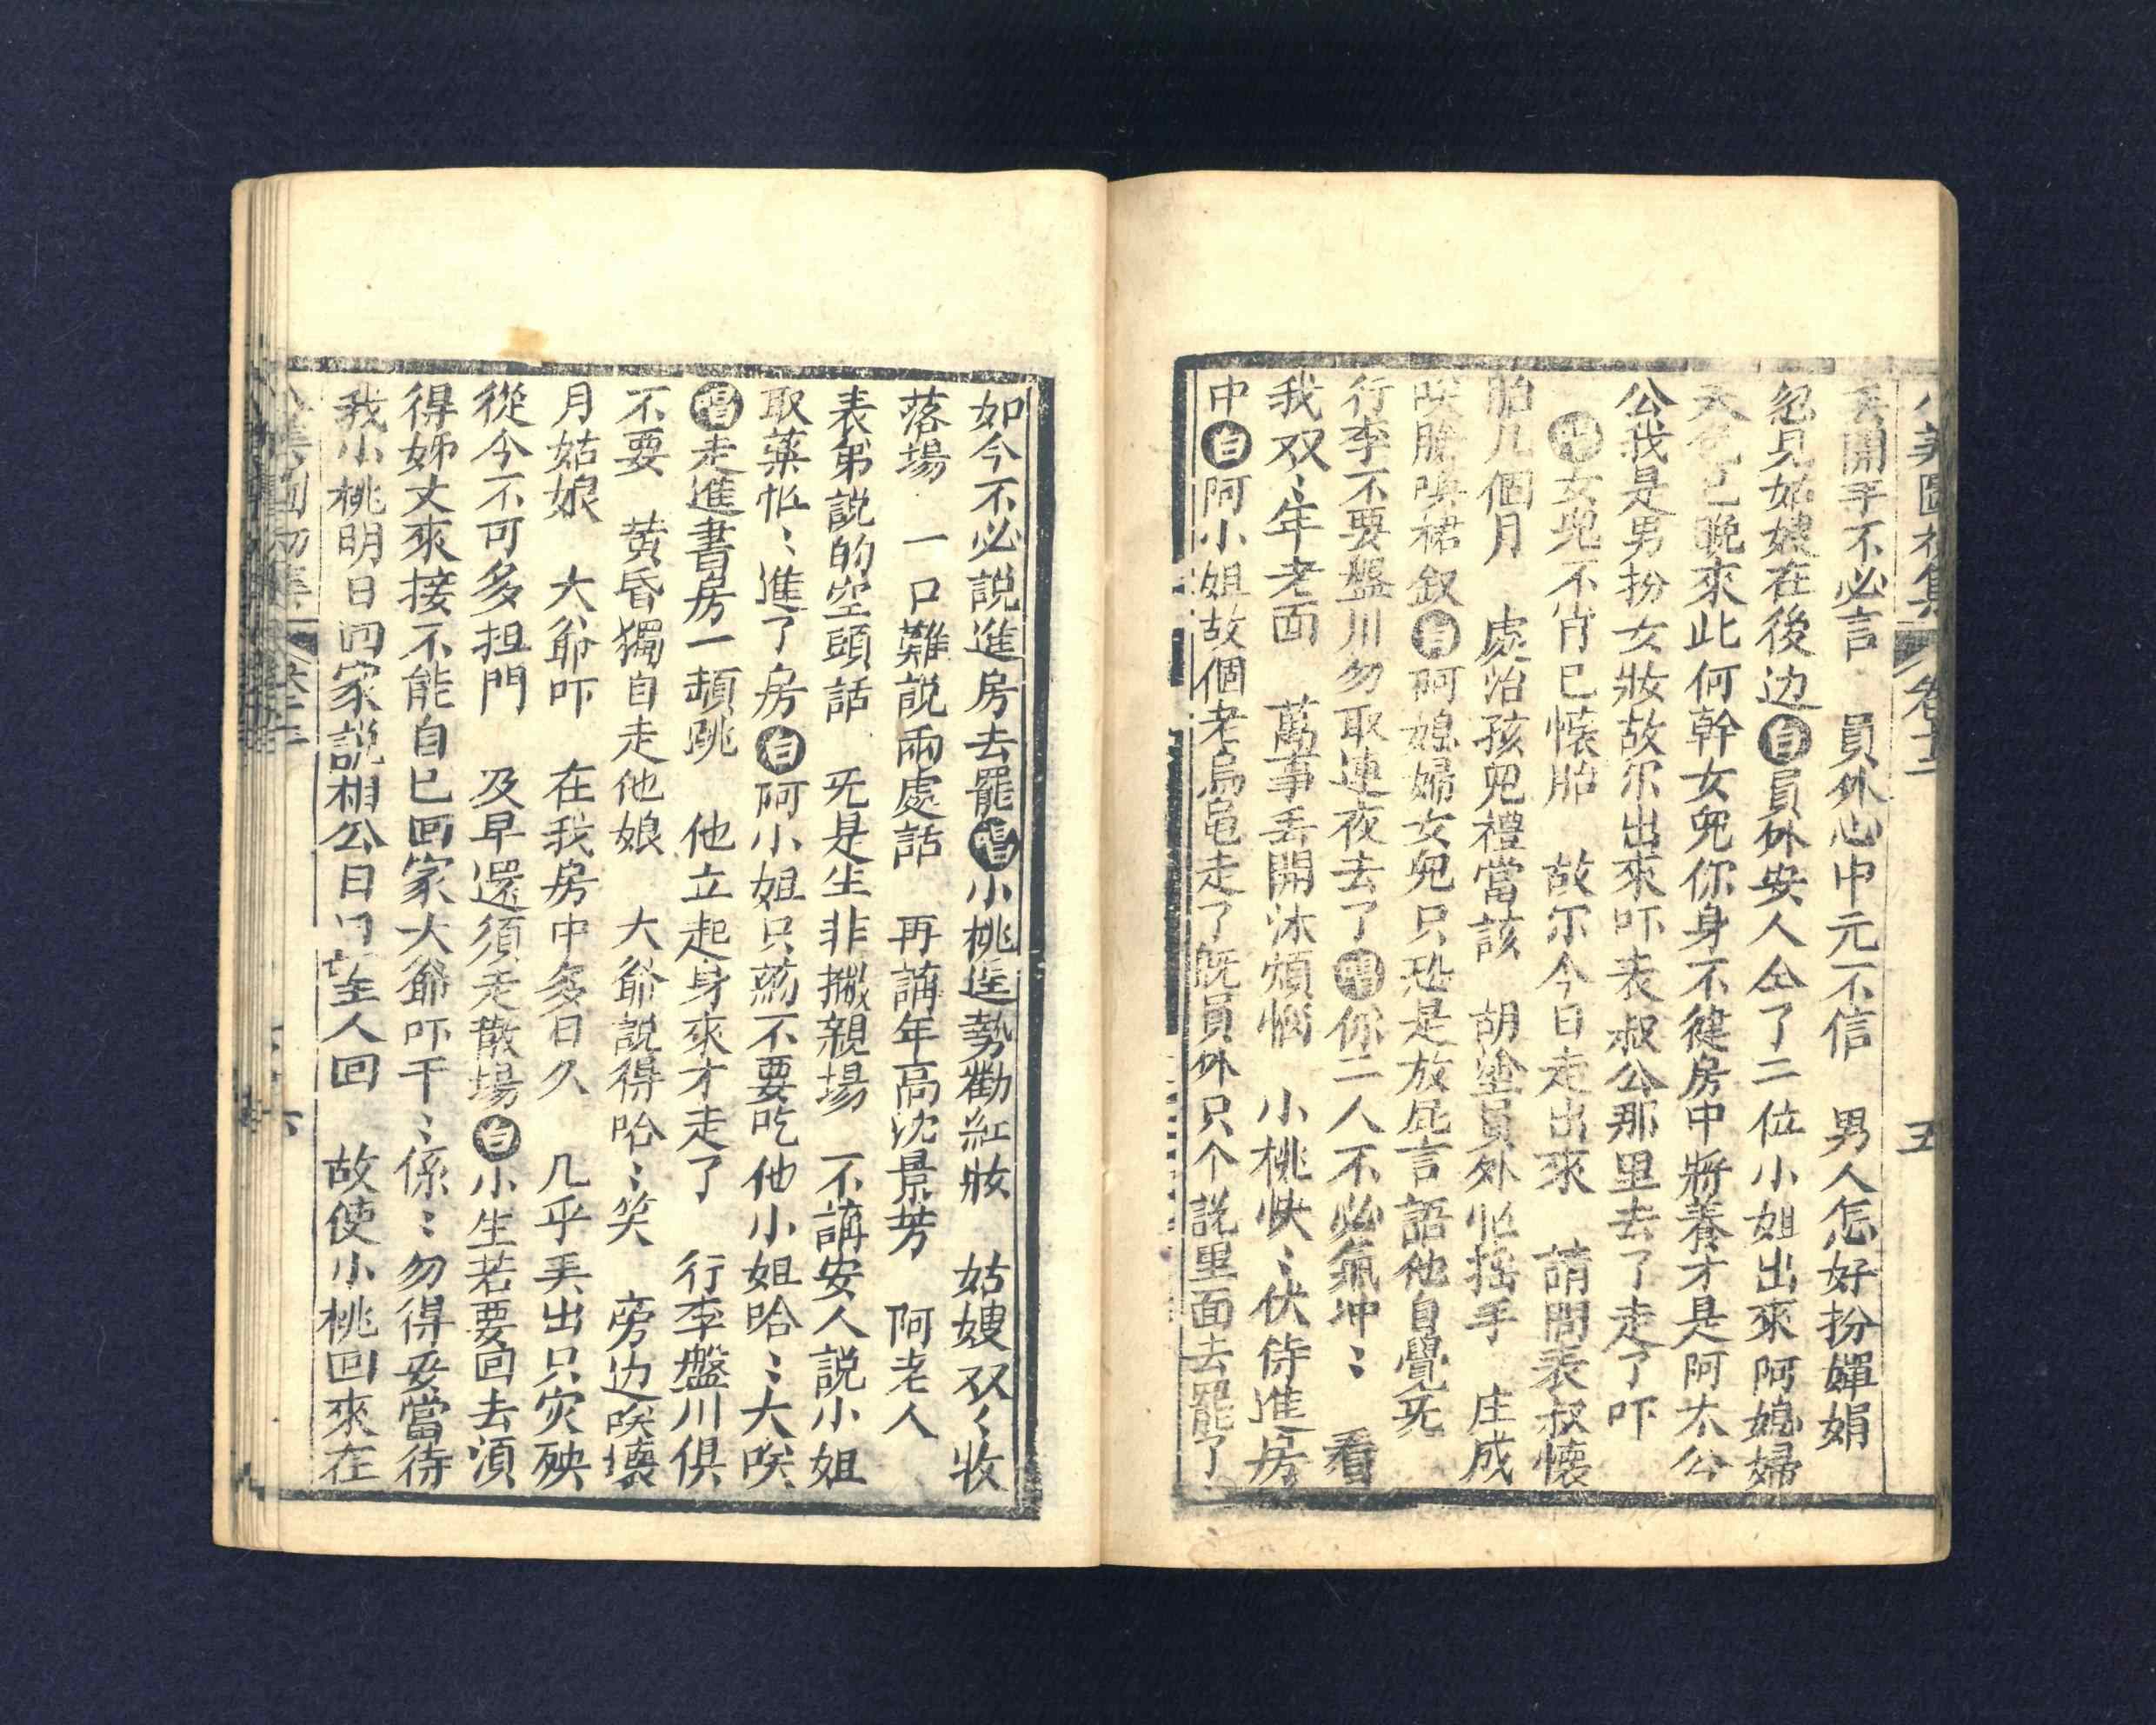 八美圖初集 卷十二 五
丢開手不必言 員外心中元不信 男人怎好扮嬋娟
忽見姑嫂在後边白員外安人仝了二位小姐出來阿媳婦
天色已晚來此何幹女兒你身不徤房中將養才是阿太公
公我是男扮女妝故尔出來吓表叔公那里去了走了吓
唱女兒不肖已懷胎 故尔今日走出來 請問表叔懷
胎几個月 處治孩兒禮當該 胡塗員外忙摇手 庄成
唉臉喚裙釵白阿媳婦女兒只恐是放屁言語他自覺死
行李不要盤川勿取連夜去了唱你二人不必氣冲〻 看
我双〻年老面 萬事丢開沐煩惱 小桃快〻伏侍進房
中白阿小姐故個老烏龟走了既員外只个説里面去罷了
如今不必説進房去罷唱小桃逞勢勸紅妝 姑嫂双〻收
落場 一口難説兩處話 再講年高沈景芳 阿老人
表弟説的空頭話 死是生非搬親場 不講安人説小姐
取葯忙〻進了房白阿小姐只葯不要吃他小姐哈〻大唉
唱走進書房一頼跳 他立起身來才走了 行李盤川俱
不要 黄昏獨自走他娘 大爺説得哈〻笑 旁边唉壞
月姑娘 大爺吓 在我房中多日久 几乎弄出只灾殃
從今不可多担門 及早還須走散場白小生若要回去湏
得姊丈來接不能自已回家大爺吓干〻係〻勿得妥當待
我小桃明日回家説相公日日望人回 故使小桃回來在
八美圖初集 六